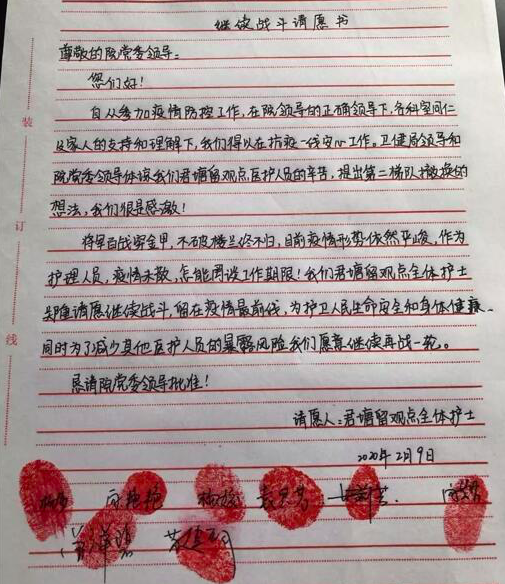 继续战斗请愿书
尊敬的院党委领导：
您们好！
自从参加疫情防控工作，在院领导的正确领导下，各科室同仁
及家人的支持和理解下，我们得以在抗疫一线安心工作。卫健局领导和
院党委领导体谅我们君塘留观点医护人员的辛苦，提出第二梯队撤换的
想法，我们很是感激！
将军百战穿金甲，不破楼兰终不归，目前疫情形势依然严峻，作为
护理人员，疫情未散，怎能再谈工作期限！我们君塘留观点全体护士
郑重请愿继续战斗，留在疫情最前线，为护卫人民生命安全和身体健康。
同时为了减少其他医护人员的暴露风险我们愿意继续再战一轮。
恳请院党委领导批准！
请愿人：君塘留观点全体护士
2020年2月9日
装
订
线